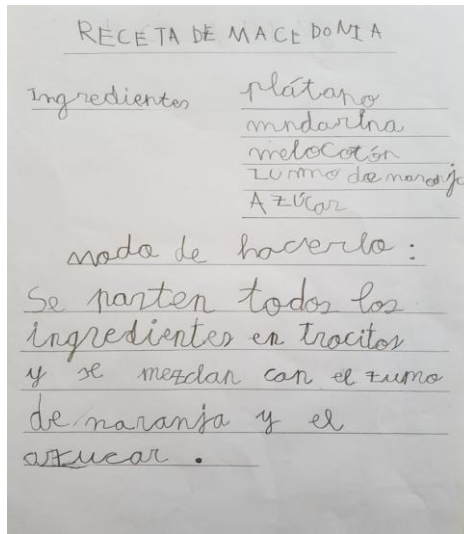 RECETA DE MACEDONIA
Ingredientes plátano
mndarina
melocotón
zummo de naranja
AZÚCar
modo de hacerlo:
Se parten todos los
ingredientes en trocitos
y se mezclan con el zumo
de naranja y el
azucar.